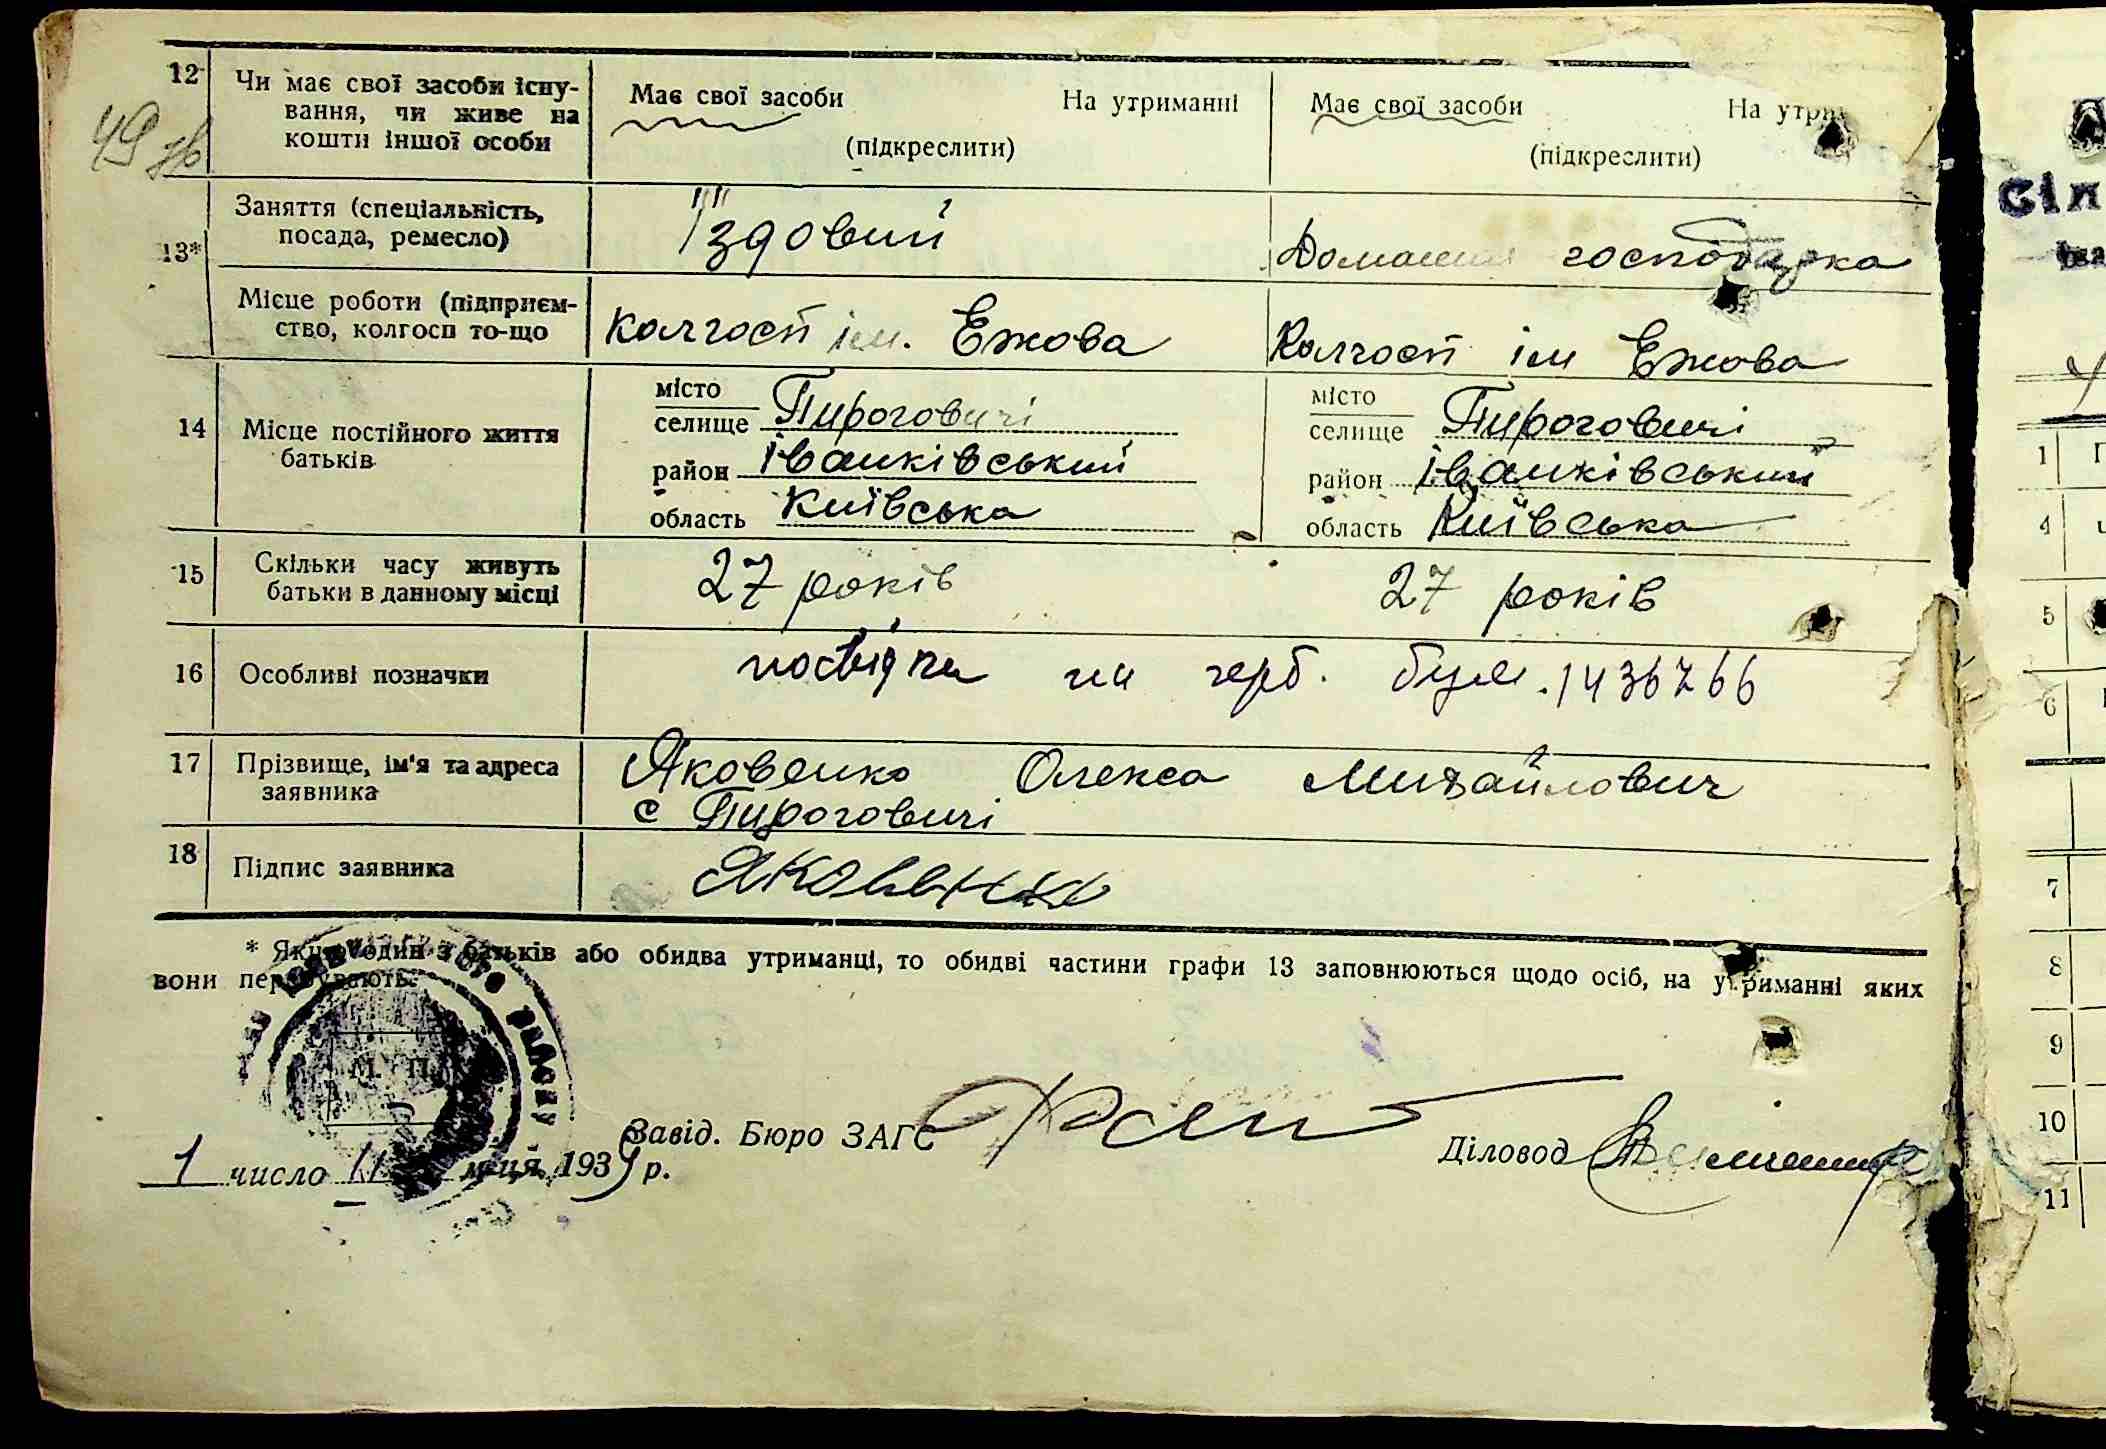 49 зв
12 Чи має свої засоби існу-
вання, чи живе на
кошти іншої особи
Має свої засоби На утриманні
(підкреслити)
Має свої засоби На утри
(підкреслити)
13*
Заняття (спеціальність,
посада, ремесло)
Їздовий
Домашня господарка
Місце роботи (підприєм-
ство, колгосп то-що
Колгосп ім. Ежова
Колгосп ім Ежова
14 Місце постійного життя
батьків
місто
селище Пироговичі
район Іванківський
область Київська
місто
селище Пироговичі
район Іванківський
область Київська
15 Скільки часу живуть
батьки в данному місці
27 років
27 років
16 Особливі позначки
посвідка на герб. бум. 1436766
17 Прізвище, ім'я та адреса
заявника
Яковенко Олекса Михайлович
с Пироговичі
18 Підпис заявника
Яковенко
* Якщо один з батьків або обидва утриманці, то обидві частини графи 13 заповнюються щодо осіб, на утриманні яких
вони перебувають.
М. П.
Завід. Бюро ЗАГС
Діловод
1 число м-ця 1939 р.
сіл
1
4
5
6
7
8
9
10
11